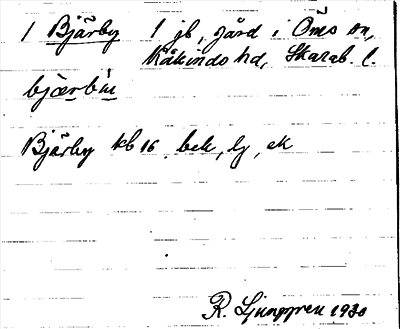 1 Bjärby 1 jb, gård i Öms sn,
Kåkinds hd, Skarab. l.
bjærbin
Bjärby kb 16 bek, lj, ek
R. Ljunggren 1930